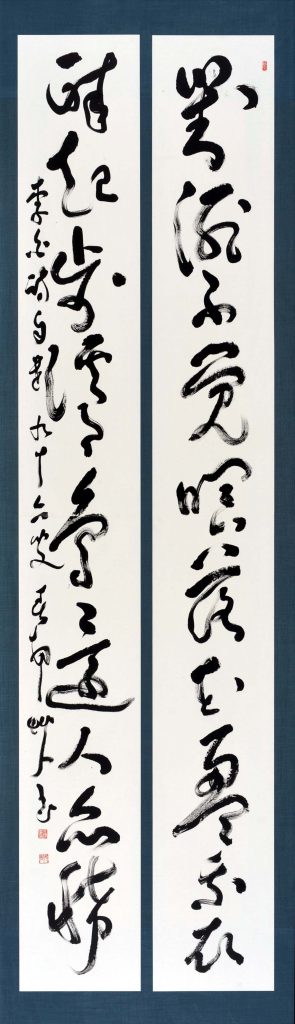 對酒不覺暝落花盈我衣
醉起步溪月鳥還人亦稀
李白詩自遣 九十